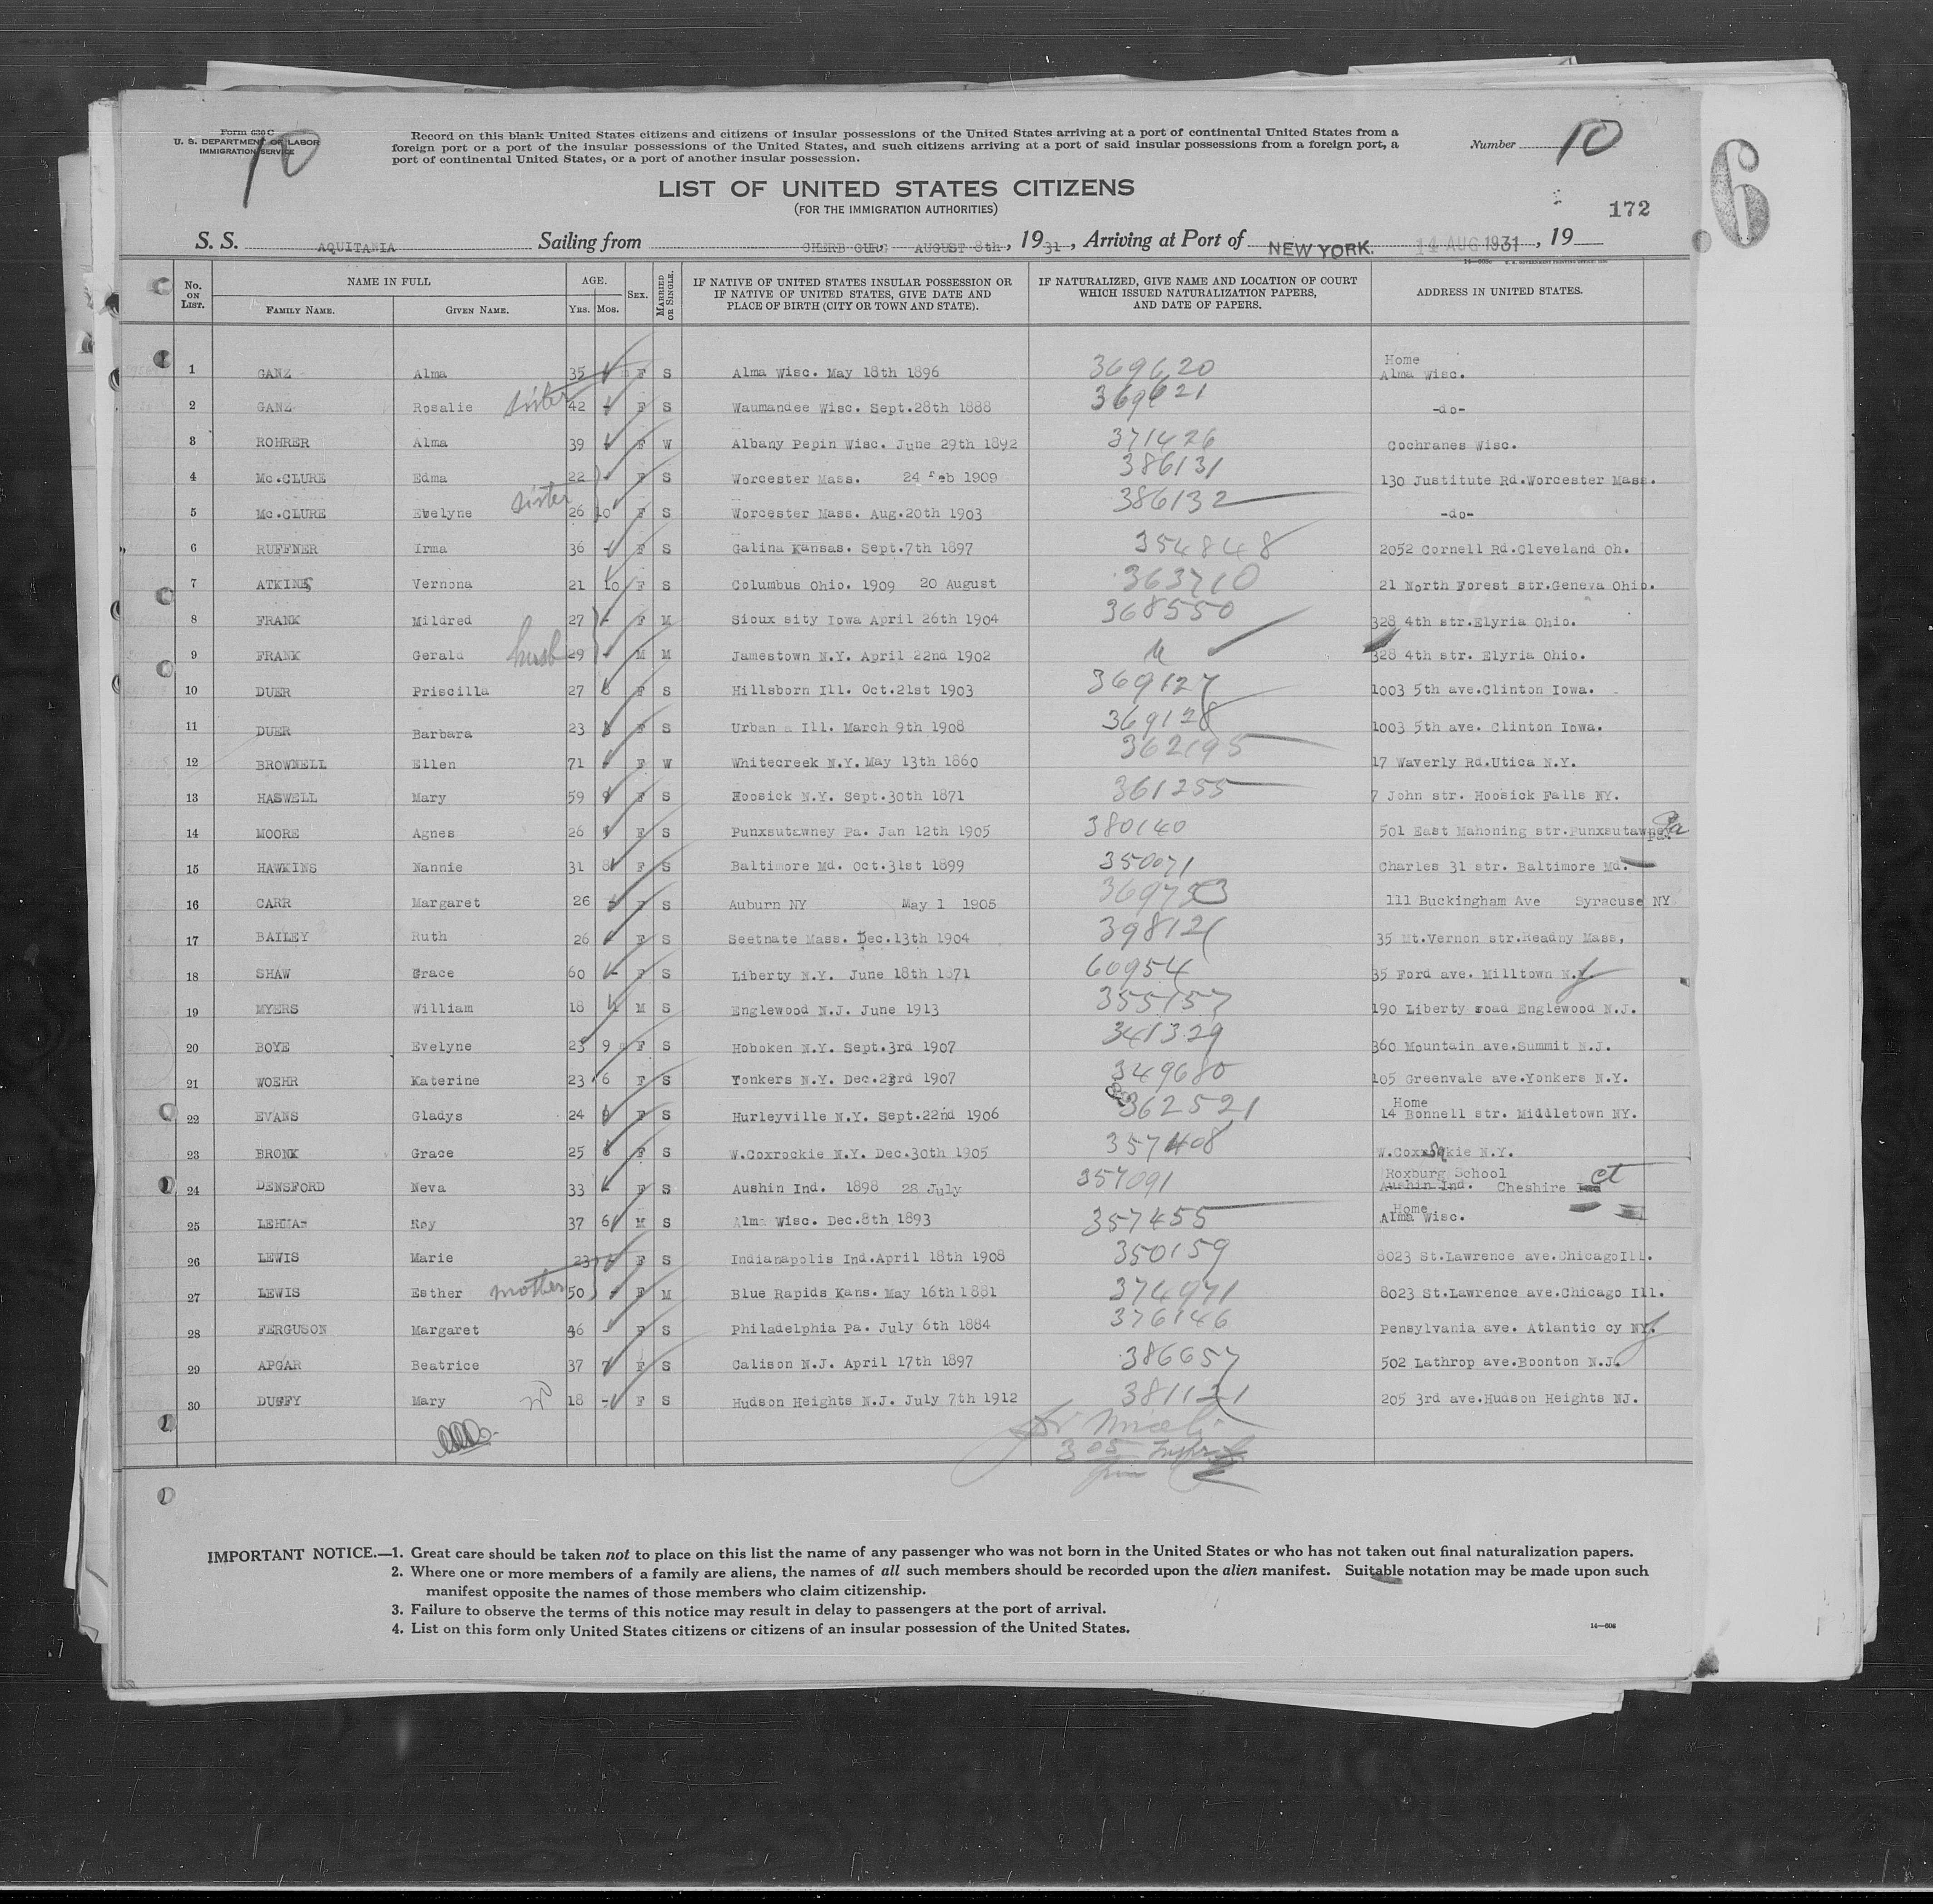 Form 630 C
U. S. DEPARTMENT OF LABOR
IMMIGRATION SERVICE
10
Record on this blank United States citizens and citizens of insular possessions of the United States arriving at a port of continental United States from a
foreign port or a port of the insular possessions of the United States, and such citizens arriving at a port of said insular possessions from a foreign port, a
port of continental United States, or a port of another insular possession.
Number 10
6
LIST OF UNITED STATES CITIZENS
(FOR THE IMMIGRATION AUTHORITIES)
172
S. S. AQUITANIA Sailing from CHERB OURG AUGUST 8th, 1931, Arriving at Port of NEW YORK. 14 AUG 1931, 19
No. ON LIST. NAME IN FULL FAMILY NAME. GIVEN NAME. AGE. YRS. MOS. SEX. MARRIED OR SINGLE. IF NATIVE OF UNITED STATES INSULAR POSSESSION OR IF NATIVE OF UNITED STATES, GIVE DATE AND PLACE OF BIRTH (CITY OR TOWN AND STATE). IF NATURALIZED, GIVE NAME AND LOCATION OF COURT WHICH ISSUED NATURALIZATION PAPERS, AND DATE OF PAPERS. ADDRESS IN UNITED STATES.
1 GANZ Alma 35 F S Alma Wisc. May 18th 1896 369620 Home Alma Wisc.
2 GANZ Rosalie sister 42 - F S Waumandee Wisc. Sept.28th 1888 369621 -do-
3 ROHRER Alma 39 F W Albany Pepin Wisc. June 29th 1892 371426 Cochranes Wisc.
4 Mc.CLURE Edma 22 F S Worcester Mass. 24 Feb 1909 386131 130 Justitute Rd.Worcester Mass.
5 Mc.CLURE Evelyne sister 26 10 F S Worcester Mass. Aug.20th 1903 386132 -do-
6 RUFFNER Irma 36 - F S Galina Kansas. Sept.7th 1897 354848 2052 Cornell Rd.Cleveland Oh.
7 ATKINS Vernona 21 10 F S Columbus Ohio. 1909 20 August 363710 21 North Forest str.Geneva Ohio.
8 FRANK Mildred 27 - F M Sioux sity Iowa April 26th 1904 368550 328 4th str.Elyria Ohio.
9 FRANK Gerald husb 29 - M M Jamestown N.Y. April 22nd 1902 328 4th str. Elyria Ohio.
10 DUER Priscilla 27 F S Hillsborn Ill. Oct.21st 1903 369127 1003 5th ave.Clinton Iowa.
11 DUER Barbara 23 F S Urban a Ill. March 9th 1908 369128 1003 5th ave. Clinton Iowa.
12 BROWNELL Ellen 71 F W Whitecreek N.Y. May 13th 1860 362195 17 Waverly Rd.Utica N.Y.
13 HASWELL Mary 59 9 F S Hoosick N.Y. Sept.30th 1871 361255 7 John str. Hoosick Falls NY.
14 MOORE Agnes 26 F S Punxsutawney Pa. Jan 12th 1905 380140 501 East Mahoning str.Punxsutawney Pa
15 HAWKINS Nannie 31 8 F S Baltimore Md. Oct.31st 1899 350071 Charles 31 str. Baltimore Md.
16 CARR Margaret 26 - F S Auburn NY May 1 1905 111 Buckingham Ave Syracuse NY
17 BAILEY Ruth 26 F S Seetnate Mass. Dec.13th 1904 398121 35 Mt.Vernon str.Readny Mass,
18 SHAW Grace 60 - F S Liberty N.Y. June 18th 1871 60954 35 Ford ave. Milltown N.J.
19 MYERS William 18 M S Englewood N.J. June 1913 355157 190 Liberty road Englewood N.J.
20 BOYE Evelyne 23 9 F S Hoboken N.Y. Sept.3rd 1907 341329 360 Mountain ave.Summit N.J.
21 WOEHR Katerine 23 6 F S Yonkers N.Y. Dec.23rd 1907 349680 105 Greenvale ave.Yonkers N.Y.
22 EVANS Gladys 24 F S Hurleyville N.Y. Sept.22nd 1906 362521 Home 14 Bonnell str. Middletown NY.
23 BRONK Grace 25 F S W.Coxrockie N.Y. Dec.30th 1905 357408 W.Coxsakie N.Y.
24 DENSFORD Neva 33 F S Aushin Ind. 1898 28 July 357091 Roxburg School Aushin Ind. Cheshire Ct
25 LEHMAN Roy 37 6 M S Alma Wisc. Dec.8th 1893 357455 Home Alma Wisc.
26 LEWIS Marie 23 F S Indianapolis Ind.April 18th 1908 350159 8023 St.Lawrence ave.ChicagoIll.
27 LEWIS Esther mother 50 - F M Blue Rapids Kans. May 16th 1881 374971 8023 St.Lawrence ave.Chicago Ill.
28 FERGUSON Margaret 46 - F S Philadelphia Pa. July 6th 1884 376146 Pensylvania ave. Atlantic cy NJ.
29 APGAR Beatrice 37 7 F S Calison N.J. April 17th 1897 386657 502 Lathrop ave.Boonton N.J.
30 DUFFY Mary 18 - F S Hudson Heights N.J. July 7th 1912 381121 205 3rd ave.Hudson Heights NJ.
305
IMPORTANT NOTICE.—1. Great care should be taken not to place on this list the name of any passenger who was not born in the United States or who has not taken out final naturalization papers.
2. Where one or more members of a family are aliens, the names of all such members should be recorded upon the alien manifest. Suitable notation may be made upon such
manifest opposite the names of those members who claim citizenship.
3. Failure to observe the terms of this notice may result in delay to passengers at the port of arrival.
4. List on this form only United States citizens or citizens of an insular possession of the United States.
14—606